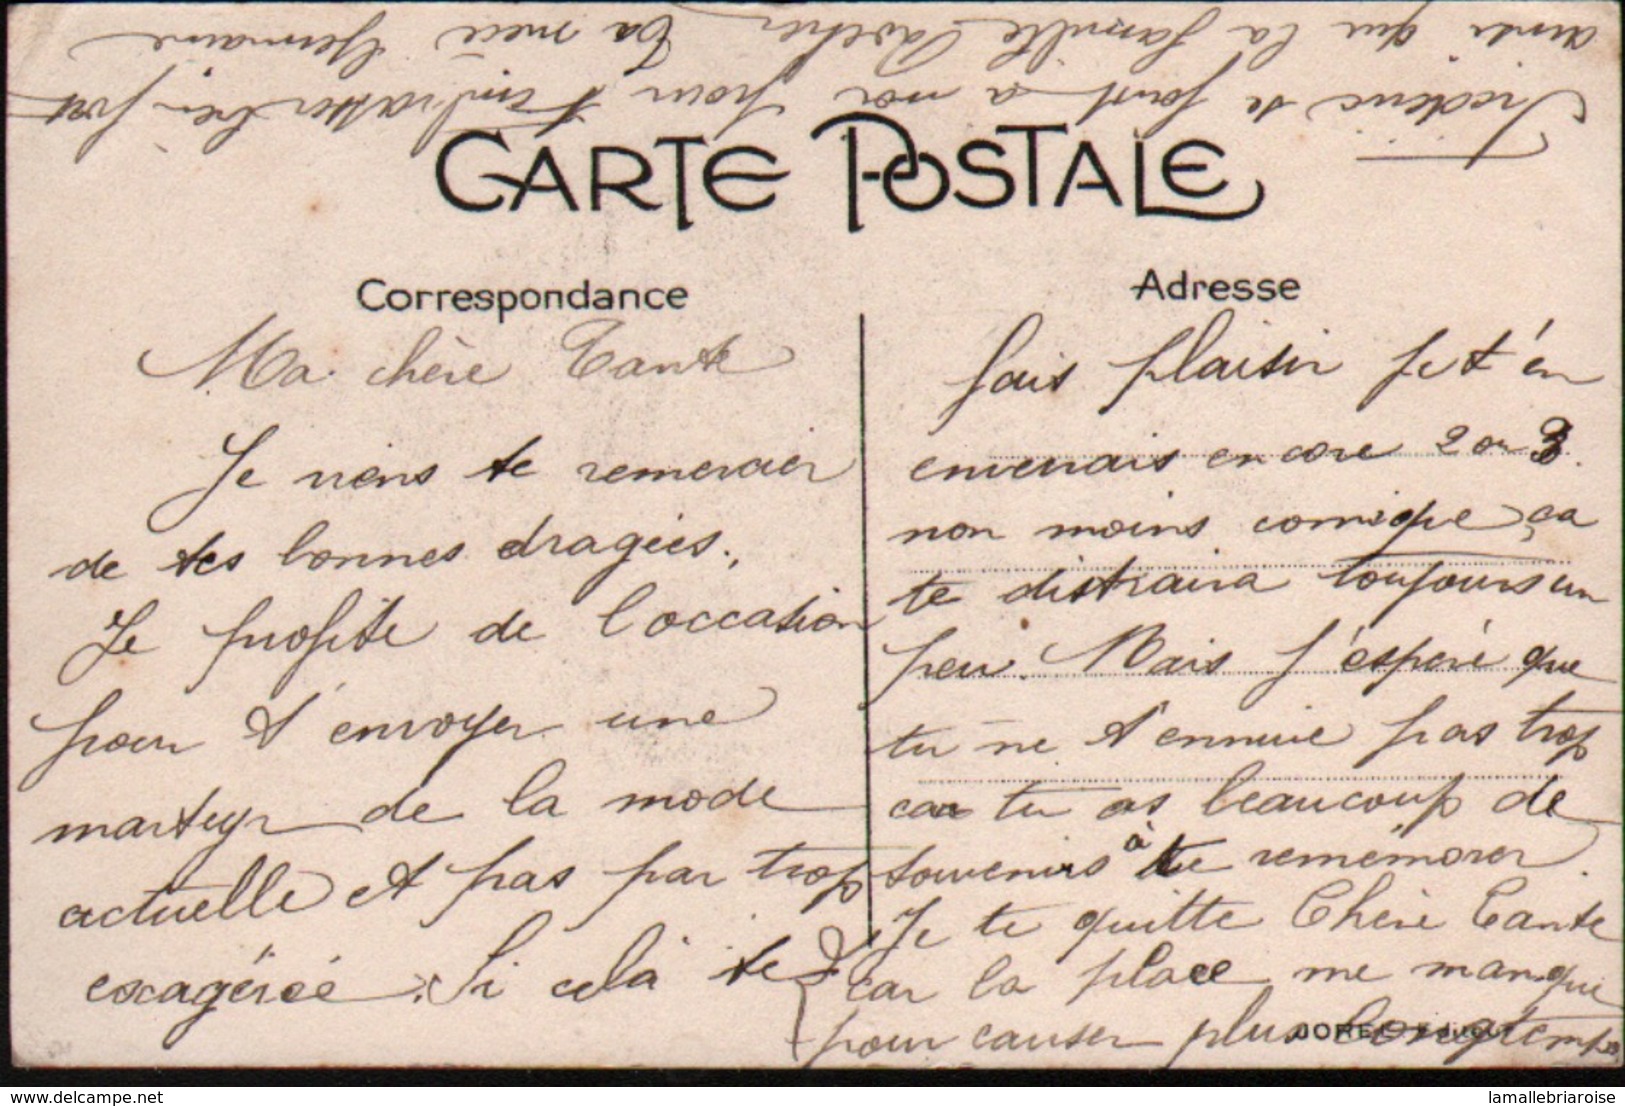 CARTE POSTALE
Correspondance
Ma chère Tante
Je viens te remercier
de tes bonnes dragées.
Je profite de l'occation
pour t'envoyer une
martyr de la mode
actuelle et pas par trop
exagérée. Si celà te
Adresse
fais plaisir je t'en
enverrais encore 2 ou 3
non moins comique ça
te distraira toujours un
peu. Mais j'espère que
tu ne t'ennuie pas trop
car tu as beaucoup de
souvenirs à te remémorer.
Je te quitte Chère Tante
car la place me manque
pour causer plus longtemps
se joint a moi pour t'embrasser bien fort
ainsi que la famille Ta nièce Germaine
lamallebriaroise